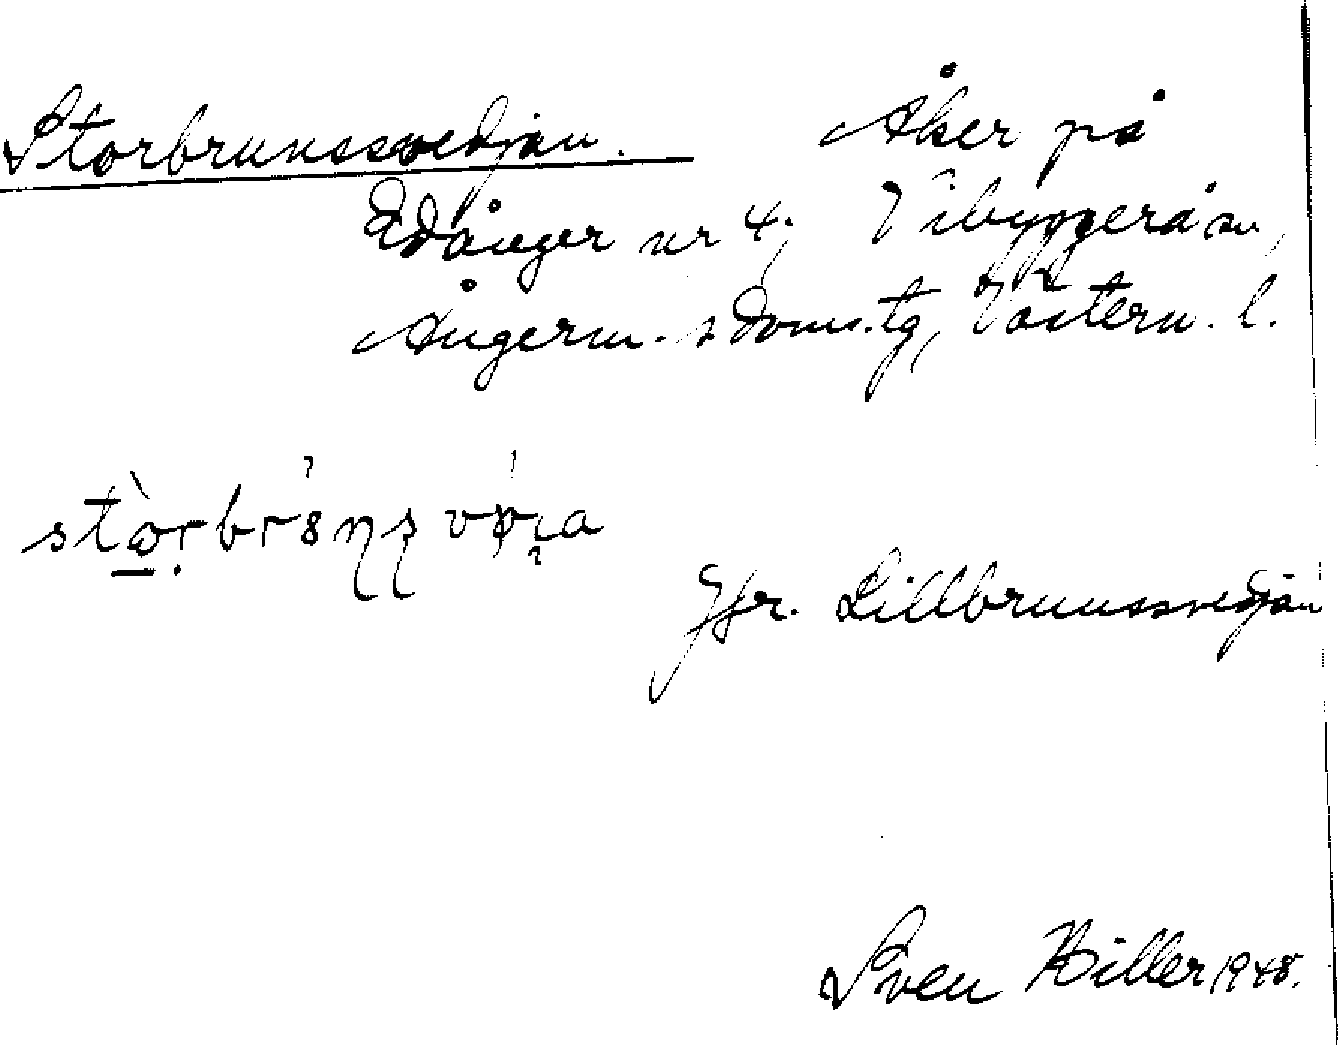 Storbrunssvedjan. Åker på
Edånger nr 4; Vibyggerå sn,
Ångerm. s. doms.tg, Västern. l.
Jfr. Lillbrunssvedjan
Sven Hiller 1948.